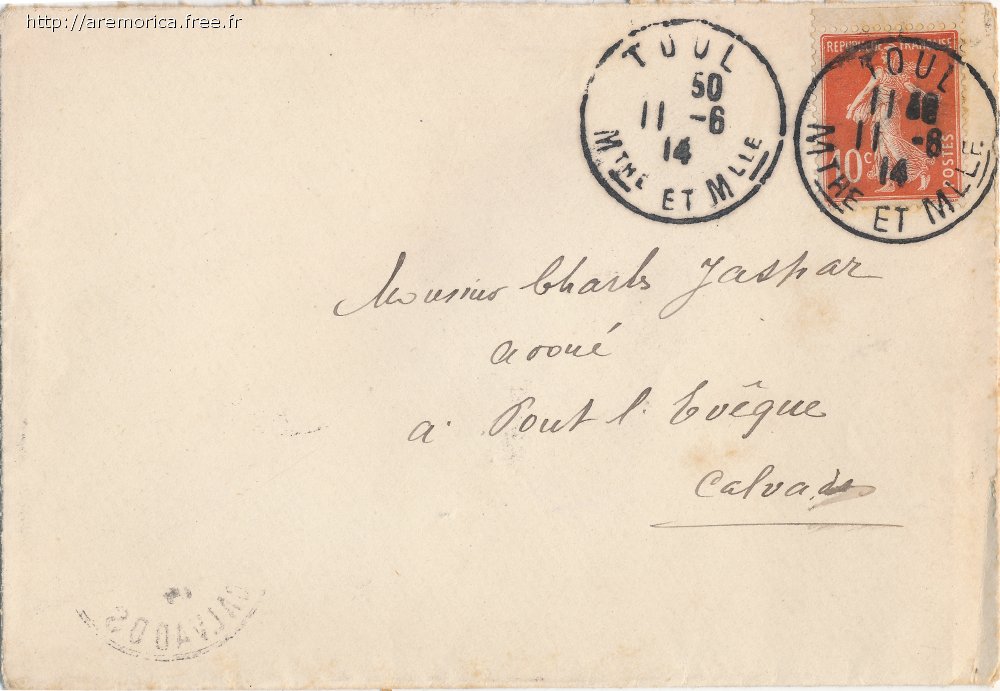 http://aremorica.free.fr
TOUL
50
11 -6
14
MTHE ET MLLE
REPUBLIQUE FRANÇAISE
10c
POSTES
TOUL
11
11 -6
14
MTHE ET MLLE
Monsieur Charles Jaspar
avoué
a Pont l'Evêque
Calvados
CALVADOS